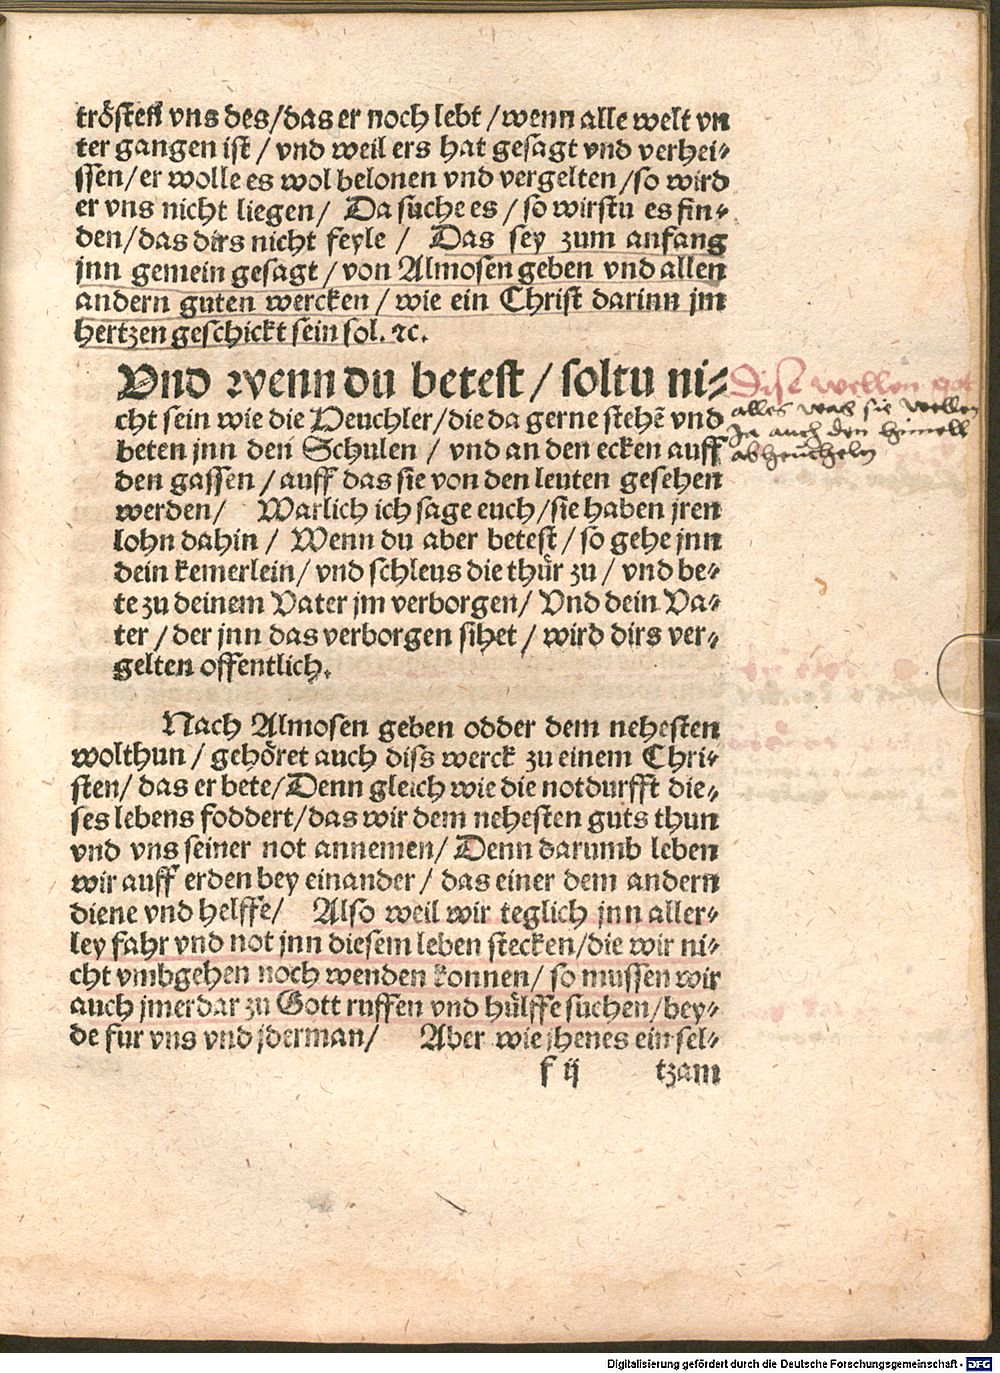 tröſten vns des/das er noch lebt/wenn alle welt vn
ter gangen iſt/vnd weil ers hat geſagt vnd verhei⸗
ſſen/er wolle es wol belonen vnd vergelten/ſo wird
er vns nicht liegen/ Da ſuche es/ſo wirſtu es fin⸗
den/das dirs nicht feyle/ Das ſey zum anfang
jnn gemein geſagt/von Almoſen geben vnd allen
andern guten wercken/wie ein Chriſt darinn jm
hertzen geſchickt ſein ſol. ꝛc.
Vnd wenn du beteſt/ſoltu ni⸗
cht ſein wie die Heuchler/die da gerne ſtehē vnd
beten jnn den Schulen/vnd an den ecken auff
den gaſſen/auff das ſie von den leuten geſehen
werden/ Warlich ich ſage euch/ſie haben jren
lohn dahin/ Wenn du aber beteſt/ſo gehe jnn
dein kemerlein/vnd ſchleus die thür zu/vnd be⸗
te zu deinem Vater jm verborgen/Vnd dein Va⸗
ter/der jnn das verborgen ſihet/wird dirs ver⸗
gelten offentlich.
Diſe wellen got
alles was ſie wellen
Ja auch den himell
abheucheln
Nach Almoſen geben odder dem neheſten
wolthun/gehöret auch diſs werck zu einem Chri⸗
ſten/das er bete/Denn gleich wie die notdurfft die⸗
ſes lebens foddert/das wir dem neheſten guts thun
vnd vns ſeiner not annemen/Denn darumb leben
wir auff erden bey einander/das einer dem andern
diene vnd helffe/ Alſo weil wir teglich jnn aller⸗
ley fahr vnd not jnn dieſem leben ſtecken/die wir ni⸗
cht vmbgehen noch wenden konnen/ſo muſſen wir
auch jmerdar zu Gott ruffen vnd hülffe ſuchen/bey⸗
de fur vns vnd jderman/ Aber wie jhenes ein ſel⸗
f ij tzam
Digitalisierung gefördert durch die Deutsche Forschungsgemeinschaft - DFG